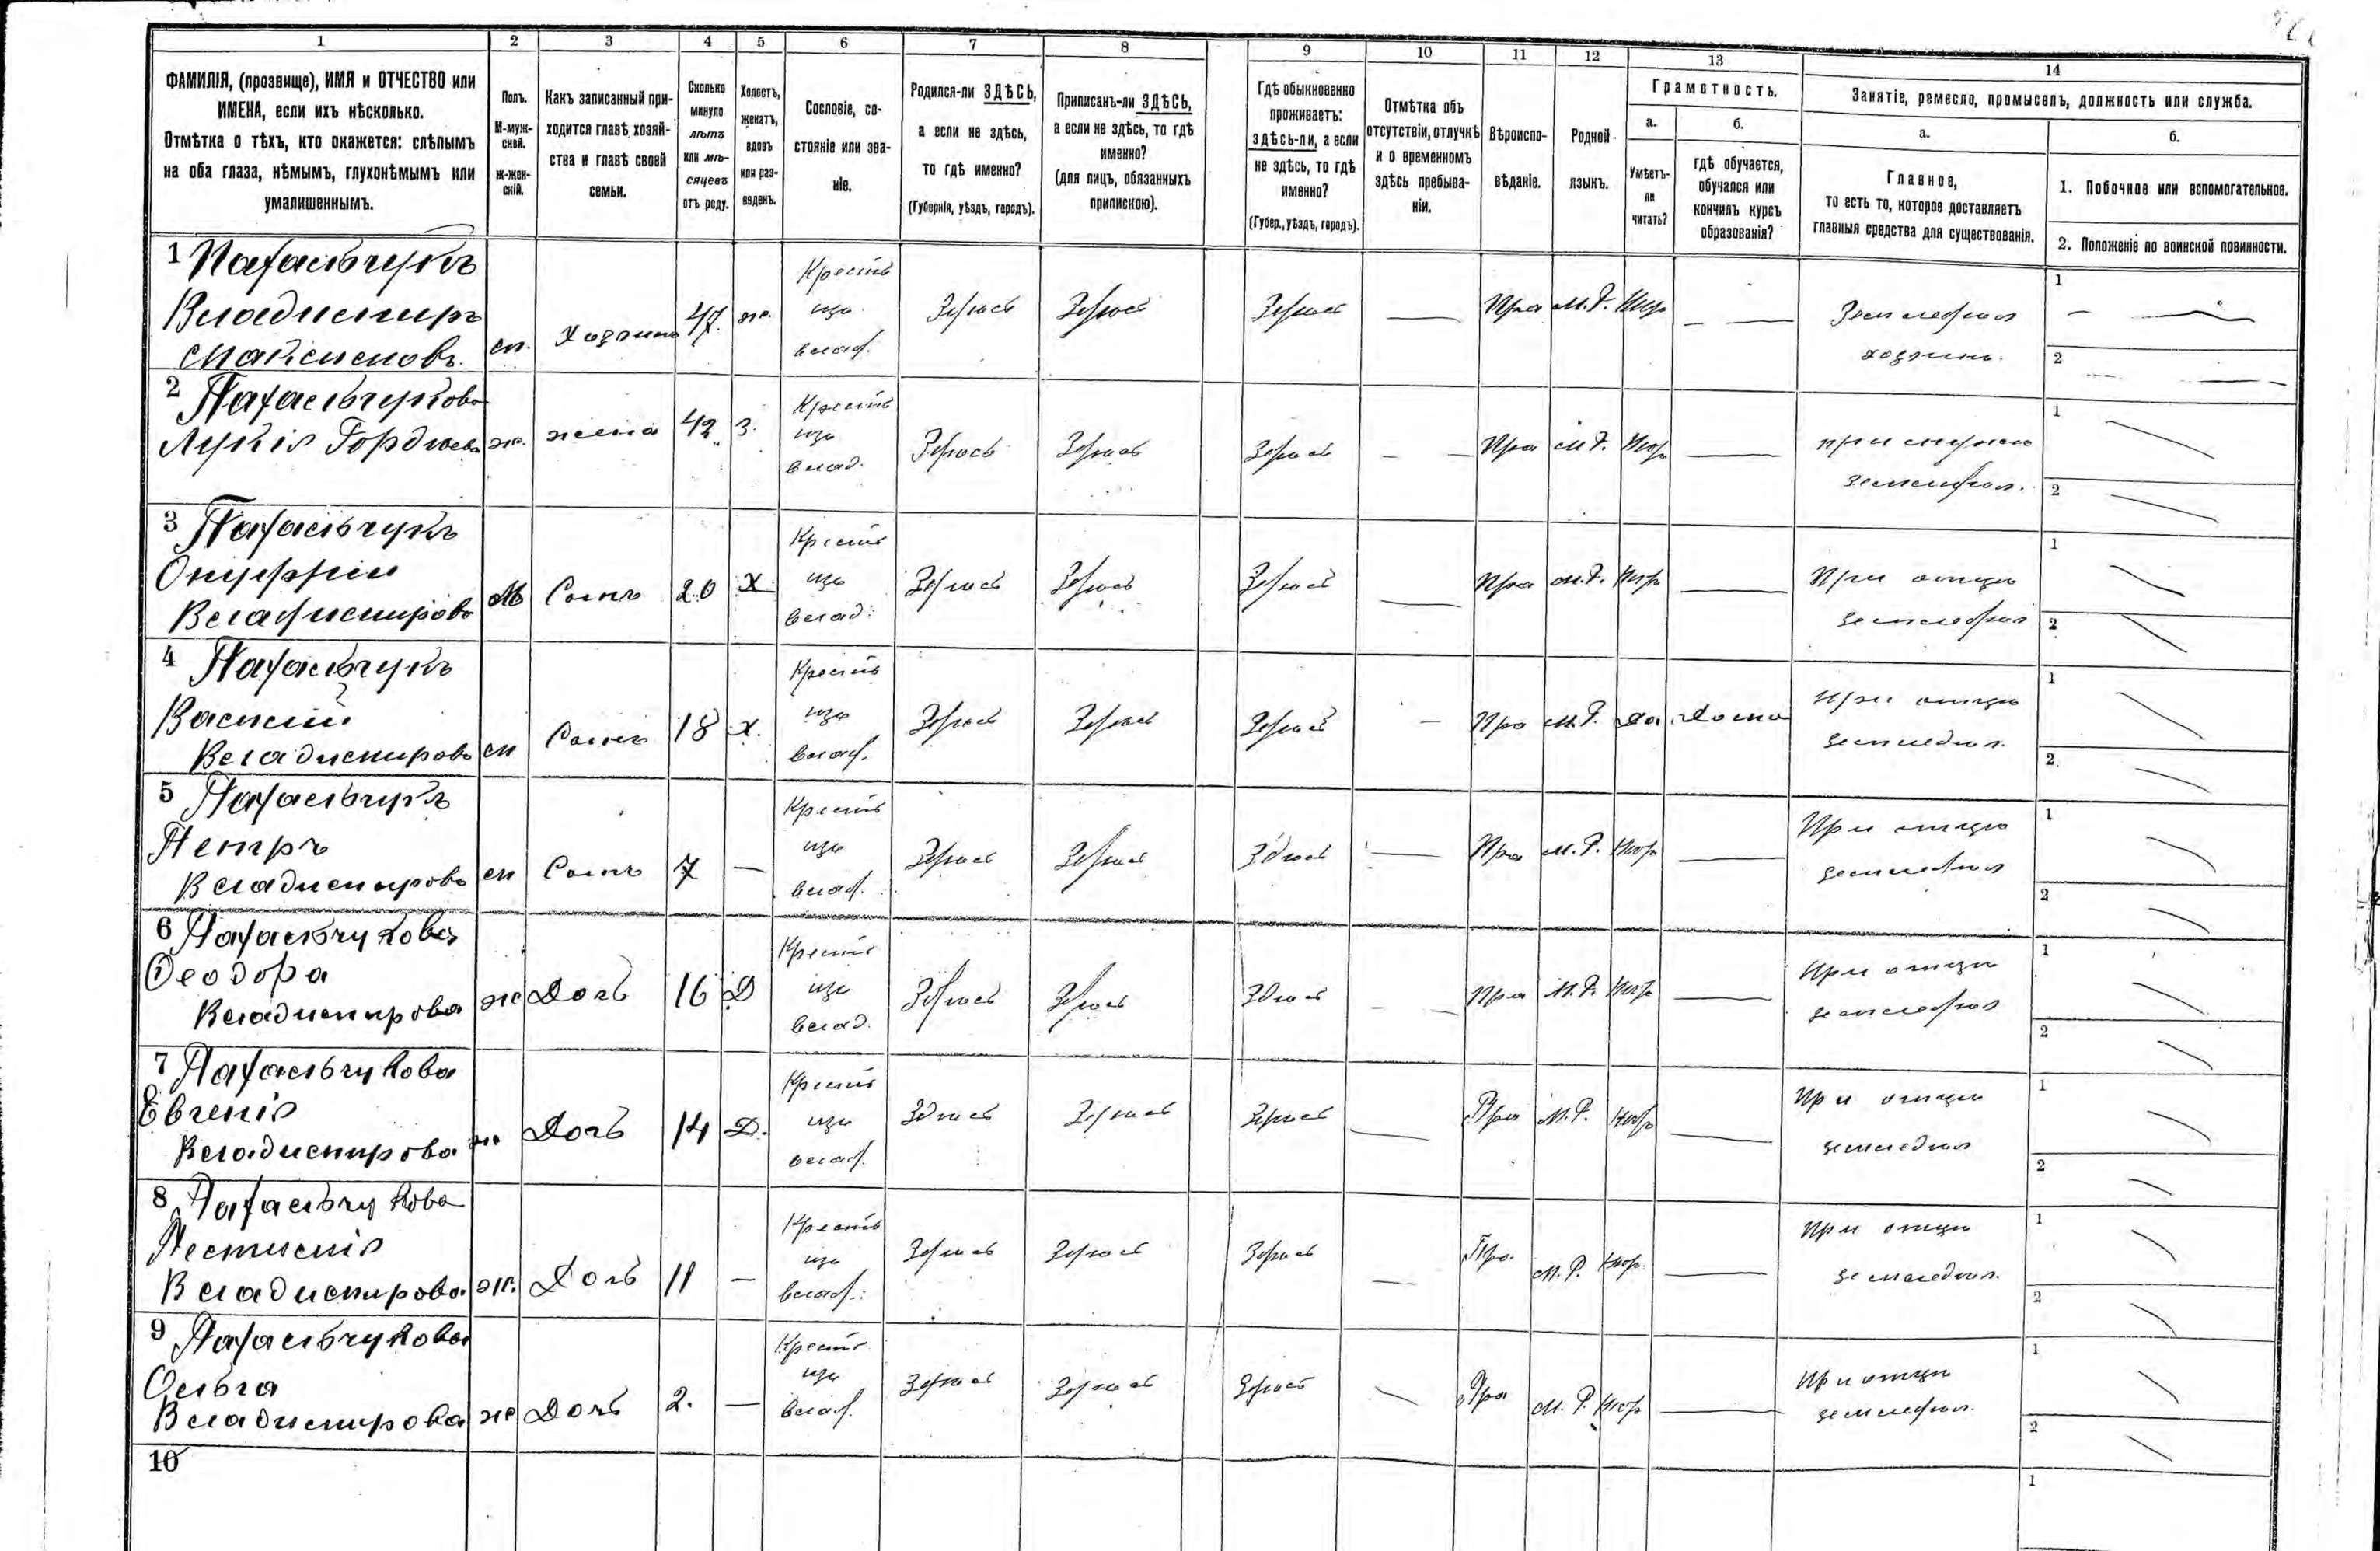 1 2 3 4 5 6 7 8 9 10 11 12 13 14
ФАМИЛІЯ, (прозвище), ИМЯ и ОТЧЕСТВО или
ИМЕНА, если ихъ нѣсколько.
Отмѣтка о тѣхъ, кто окажется: слѣпымъ
на оба глаза, нѣмымъ, глухонѣмымъ или
умалишеннымъ.
Полъ.
М-муж-
ской.
Ж-жен-
скій.
Какъ записанный при-
ходится главѣ хозяй-
ства и главѣ своей
семьи.
Сколько
минуло
лѣтъ
или мѣ-
сяцевъ
отъ роду.
Холостъ,
женатъ,
вдовъ
или раз-
веденъ.
Сословіе, со-
стояніе или зва-
ніе.
Родился-ли ЗДѢСЬ,
а если не здѣсь,
то гдѣ именно?
(Губернія, уѣздъ, городъ).
Приписанъ-ли ЗДѢСЬ,
а если не здѣсь, то гдѣ
именно?
(для лицъ, обязанныхъ
припискою).
Гдѣ обыкновенно
проживаетъ:
здѣсь-ли, а если
не здѣсь, то гдѣ
именно?
(Губер., уѣздъ, городъ).
Отмѣтка объ
отсутствіи, отлучкѣ
и о временномъ
здѣсь пребыва-
ніи.
Вѣроиспо-
вѣданіе.
Родной
языкъ.
Грамотность.
а.
Умѣетъ-
ли
читать?
б.
гдѣ обучается,
обучался или
кончилъ курсъ
образованія?
Занятіе, ремесло, промыселъ, должность или служба.
а.
Главное,
то есть то, которое доставляетъ
главныя средства для существованія.
б.
1. Побочное или вспомогательное.
2. Положеніе по воинской повинности.
1
Владимиръ
Максимовъ
м. Хозяинъ 47. ж. Крестъ
изъ
влад.
Здѣсь Здѣсь Здѣсь — Пра М.Р. Нѣтъ —
Земледѣліе
хозяинъ.
1 —
2 —
2
Лукія Гордѣева
ж. жена 42 З. Крестъ
изъ
влад.
Здѣсь Здѣсь Здѣсь — Пра М.Р. Нѣтъ —
при мужѣ
земледѣл.
1
2
3
Онуфрій
Владиміровъ
М Сынъ 20 Х Крестъ
изъ
влад.
Здѣсь Здѣсь Здѣсь — Пра М.Р. Нѣтъ —
При отцѣ
земледѣл
1
2
4
Василій
Владиміровъ
м Сынъ 18 Х. Крестъ
изъ
влад.
Здѣсь Здѣсь Здѣсь — Пра М.Р. Да Дома
При отцѣ
земледѣл.
1
2
5
Петръ
Владиміровъ
м Сынъ 7 — Крестъ
изъ
влад.
Здѣсь Здѣсь Здѣсь — Пра М.Р. Нѣтъ —
При отцѣ
земледѣл
1
2
6
Ѳеодора
Владимирова
ж Дочь 16 Д Крестъ
изъ
влад.
Здѣсь Здѣсь Здѣсь — Пра М.Р. Нѣтъ —
При отцѣ
земледѣл
1
2
7
Евгенія
Владимирова
ж Дочь 14 Д. Крестъ
изъ
влад.
Здѣсь Здѣсь Здѣсь — Пра М.Р. Нѣтъ —
При отцѣ
земледѣл
1
2
8
Владимирова
ж. Дочь 11 — Крестъ
изъ
влад.
Здѣсь Здѣсь Здѣсь — Пра. М.Р. Нѣтъ —
При отцѣ
земледѣл.
1
2
9
Ольга
Владимирова
ж Дочь 2. — Крестъ
изъ
влад.
Здѣсь Здѣсь Здѣсь — Пра М.Р. Нѣтъ —
При отцѣ
земледѣл.
1
2
10
1